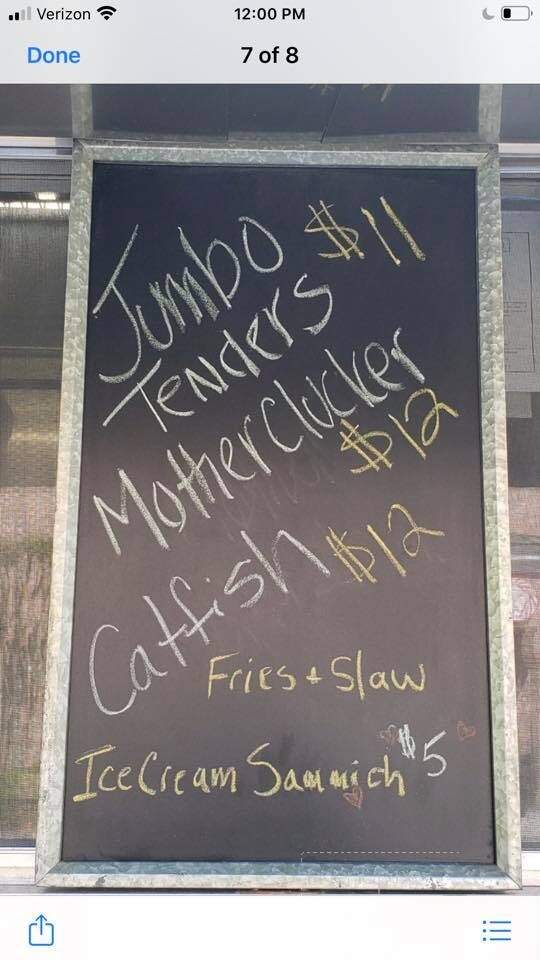 Verizon 12:00 PM
Done 7 of 8
Jumbo $11
Tenders
MotherClucker
$12
Catfish $12
Fries + Slaw
IceCream Sammich $5